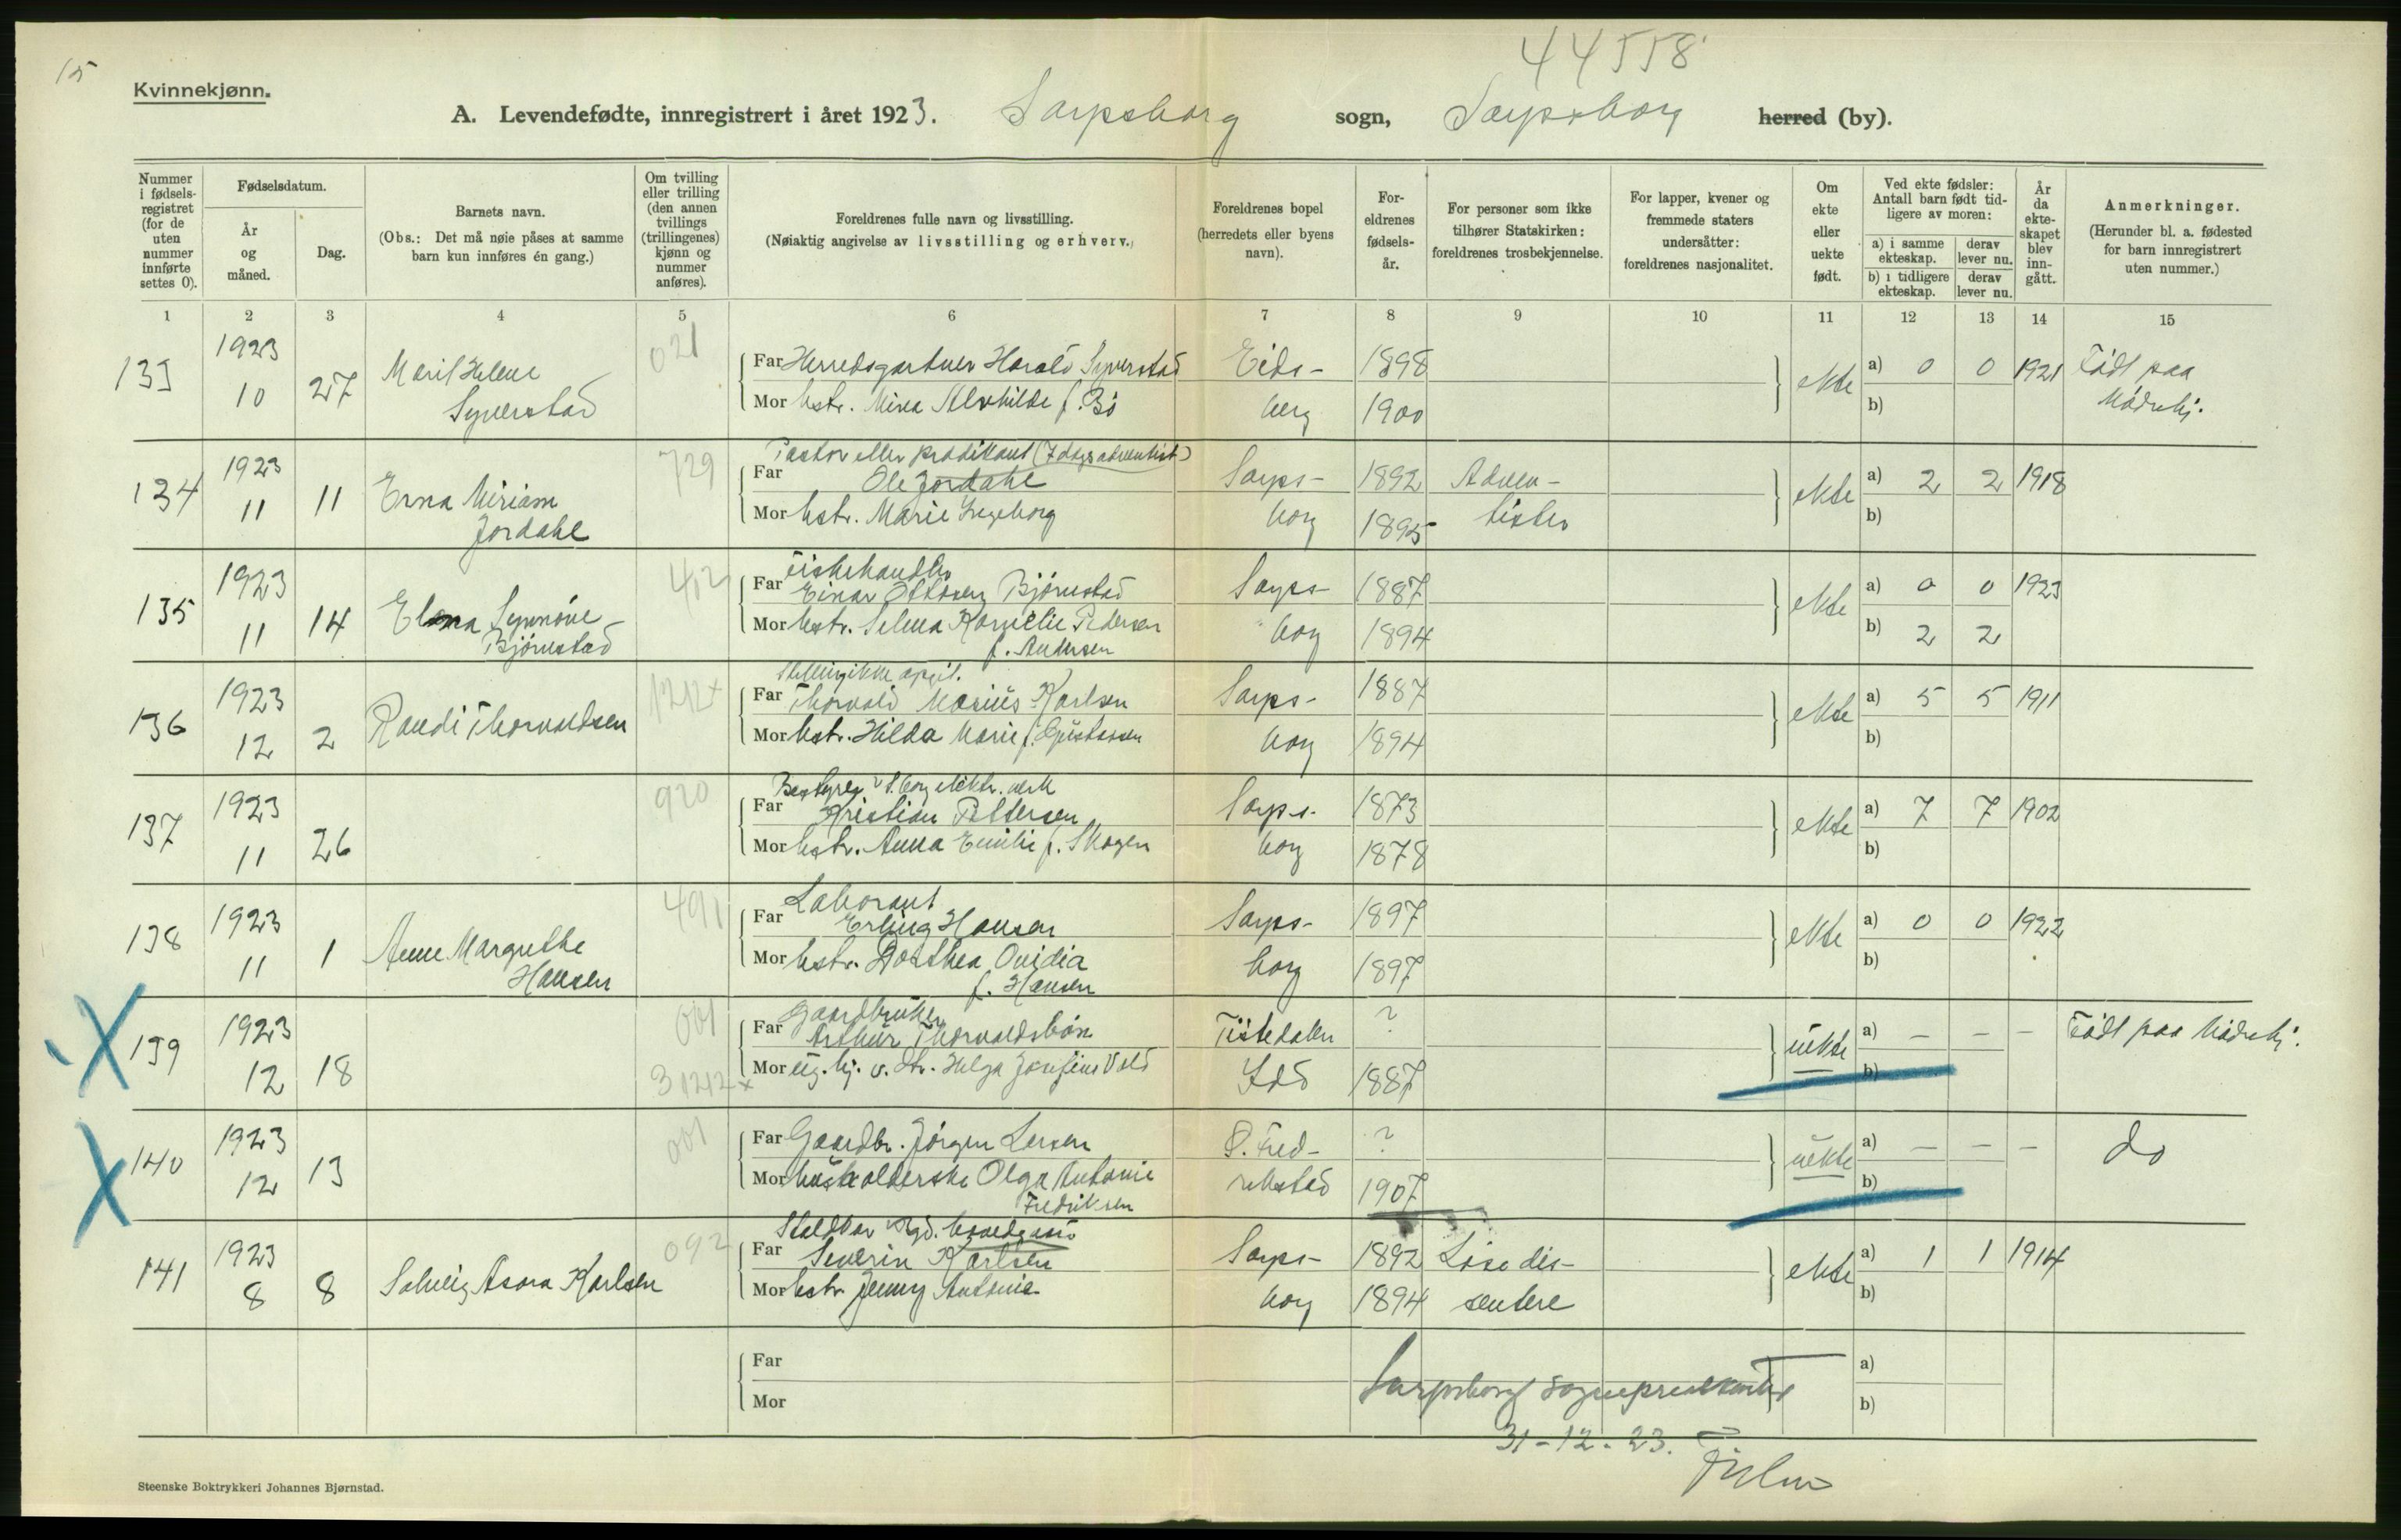 15
44558
Kvinnekjønn.
A. Levendefødte, innregistrert i året 1923. Sarpsborg sogn, Sarpsborg herred (by).
Nummer i fødsels-registret (for de uten nummer innførte settes 0).
Fødselsdatum.
År og måned.
Dag.
Barnets navn.
(Obs.: Det må nøie påses at samme barn kun innføres én gang.)
Om tvilling eller trilling (den annen tvillings (trillingenes) kjønn og nummer anføres).
Foreldrenes fulle navn og livsstilling.
(Nøiaktig angivelse av livsstilling og erhverv.)
Foreldrenes bopel (herredets eller byens navn).
For-eldrenes fødsels-år.
For personer som ikke tilhører Statskirken: foreldrenes trosbekjennelse.
For lapper, kvener og fremmede staters undersåtter: foreldrenes nasjonalitet.
Om ekte eller uekte født.
Ved ekte fødsler: Antall barn født tid-ligere av moren:
a) i samme ekteskap.
derav lever nu.
b) i tidligere ekteskap.
derav lever nu.
År da ekte-skapet blev inn-gått.
Anmerkninger.
(Herunder bl. a. fødested for barn innregistrert uten nummer.)
1 2 3 4 5 6 7 8 9 10 11 12 13 14 15
1923 021
133 10 27 Marit Helene Syverstad
Far Herredsgartner Harald Syverstad Eids- 1898 ekte a) 0 0 1921 Født paa
Mor hstr. Mina Alvhilde f. Bö berg 1900 b) Mödrehj.
1923 729
134 11 11 Erna Miriam Jordahl
Pastor eller prædikant (7 dags adventist)
Far Ole Jordahl Sarps- 1892 Adven- ekte a) 2 2 1918
Mor hstr. Marie Ingeborg borg 1895 tister b)
1923 412
135 11 14 Synnöve Björnstad
Fiskehandler
Far Einar Ottosen Björnstad Sarps- 1887 ekte a) 0 0 1923
Mor hstr. Selma Kornelie Pedersen borg 1894 b) 2 2
f. Andersen
1923 1212x
136 12 2 Randi Thorvaldsen
Stilling ikke opgit.
Far Thorvald Marius Karlsen Sarps- 1887 ekte a) 5 5 1911
Mor hstr. Hilda Marie f. Gustavsen borg 1894 b)
1923 920
137 11 26
Bestyrer v. S.borg elektr. verk
Far Kristian Pettersen Sarps- 1873 ekte a) 7 7 1902
Mor hstr. Anna Emilie f. Skogen borg 1878 b)
1923 491
138 11 1 Anne Margrethe Hansen
Laborant
Far Erling Hansen Sarps- 1897 ekte a) 0 0 1922
Mor hstr. Dorthea Ovidia borg 1897 b)
f. Hansen
1923 001
139 12 18
Gaardbruker
Far Arthur Thorvaldsbön Tistedalen ? uekte a) – – – Födt paa Mödrehj.
31212x
Mor ug. hj. v. str. Helga Josefine Vold Idd 1887 b)
1923 001
140 12 13
Far Gaardbr. Jörgen Larsen Ø. Fred- ? uekte a) – – – do
Mor husholderske Olga Antonie rikstad 1907 b)
Fredriksen
1923 092
141 8 8 Solveig Asora Karlsen
Far Severin Karlsen Sarps- 1892 Löse dis- ekte a) 1 1 1914
Mor hstr Jenny Antonie borg 1894 sentere b)
Far a)
Mor b)
Sarpsborg sogneprestkontor
31-12-23.
Steenske Boktrykkeri Johannes Bjørnstad.